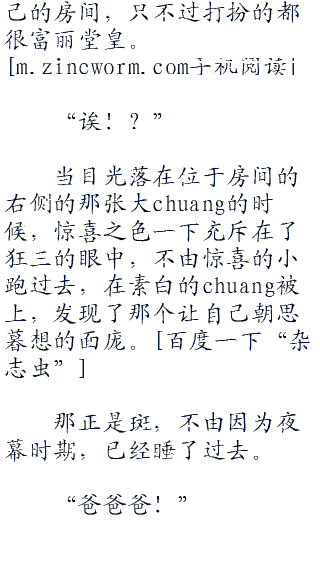 己的房间，只不过打扮的都
很富丽堂皇。
[m.zincworm.com手机阅读]
“诶！？”
当目光落在位于房间的
右侧的那张大chuang的时
候，惊喜之色一下充斥在了
狂三的眼中，不由惊喜的小
跑过去，在素白的chuang被
上，发现了那个让自己朝思
暮想的面庞。[百度一下“杂
志虫”]
那正是斑，不由因为夜
幕时期，已经睡了过去。
“爸爸爸！”